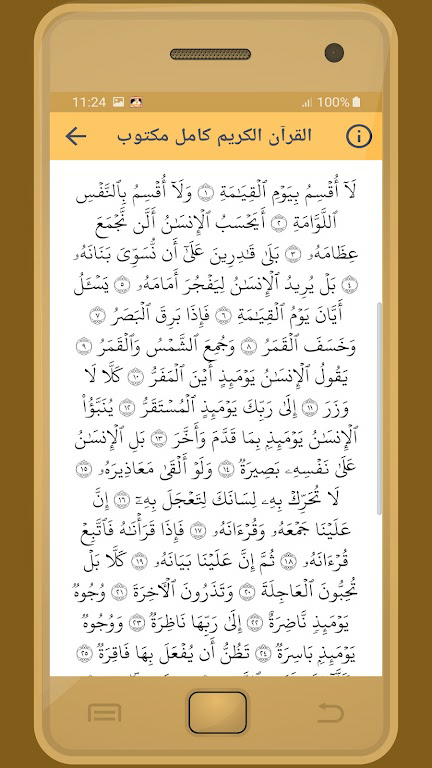 11:24
100%
القرآن الكريم كامل مكتوب
لَآ أُقۡسِمُ بِيَوۡمِ ٱلۡقِيَٰمَةِ ١ وَلَآ أُقۡسِمُ بِٱلنَّفۡسِ
ٱللَّوَّامَةِ ٢ أَيَحۡسَبُ ٱلۡإِنسَٰنُ أَلَّن نَّجۡمَعَ
عِظَامَهُۥ ٣ بَلَىٰ قَٰدِرِينَ عَلَىٰٓ أَن نُّسَوِّيَ بَنَانَهُۥ
٤ بَلۡ يُرِيدُ ٱلۡإِنسَٰنُ لِيَفۡجُرَ أَمَامَهُۥ ٥ يَسۡـَٔلُ
أَيَّانَ يَوۡمُ ٱلۡقِيَٰمَةِ ٦ فَإِذَا بَرِقَ ٱلۡبَصَرُ ٧
وَخَسَفَ ٱلۡقَمَرُ ٨ وَجُمِعَ ٱلشَّمۡسُ وَٱلۡقَمَرُ ٩
يَقُولُ ٱلۡإِنسَٰنُ يَوۡمَئِذٍ أَيۡنَ ٱلۡمَفَرُّ ١٠ كَلَّا لَا
وَزَرَ ١١ إِلَىٰ رَبِّكَ يَوۡمَئِذٍ ٱلۡمُسۡتَقَرُّ ١٢ يُنَبَّؤُاْ
ٱلۡإِنسَٰنُ يَوۡمَئِذِۭ بِمَا قَدَّمَ وَأَخَّرَ ١٣ بَلِ ٱلۡإِنسَٰنُ
عَلَىٰ نَفۡسِهِۦ بَصِيرَةٞ ١٤ وَلَوۡ أَلۡقَىٰ مَعَاذِيرَهُۥ ١٥
لَا تُحَرِّكۡ بِهِۦ لِسَانَكَ لِتَعۡجَلَ بِهِۦٓ ١٦ إِنَّ
عَلَيۡنَا جَمۡعَهُۥ وَقُرۡءَانَهُۥ ١٧ فَإِذَا قَرَأۡنَٰهُ فَٱتَّبِعۡ
قُرۡءَانَهُۥ ١٨ ثُمَّ إِنَّ عَلَيۡنَا بَيَانَهُۥ ١٩ كَلَّا بَلۡ
تُحِبُّونَ ٱلۡعَاجِلَةَ ٢٠ وَتَذَرُونَ ٱلۡأٓخِرَةَ ٢١ وُجُوهٞ
يَوۡمَئِذٖ نَّاضِرَةٌ ٢٢ إِلَىٰ رَبِّهَا نَاظِرَةٞ ٢٣ وَوُجُوهٞ
يَوۡمَئِذِۭ بَاسِرَةٞ ٢٤ تَظُنُّ أَن يُفۡعَلَ بِهَا فَاقِرَةٞ ٢٥